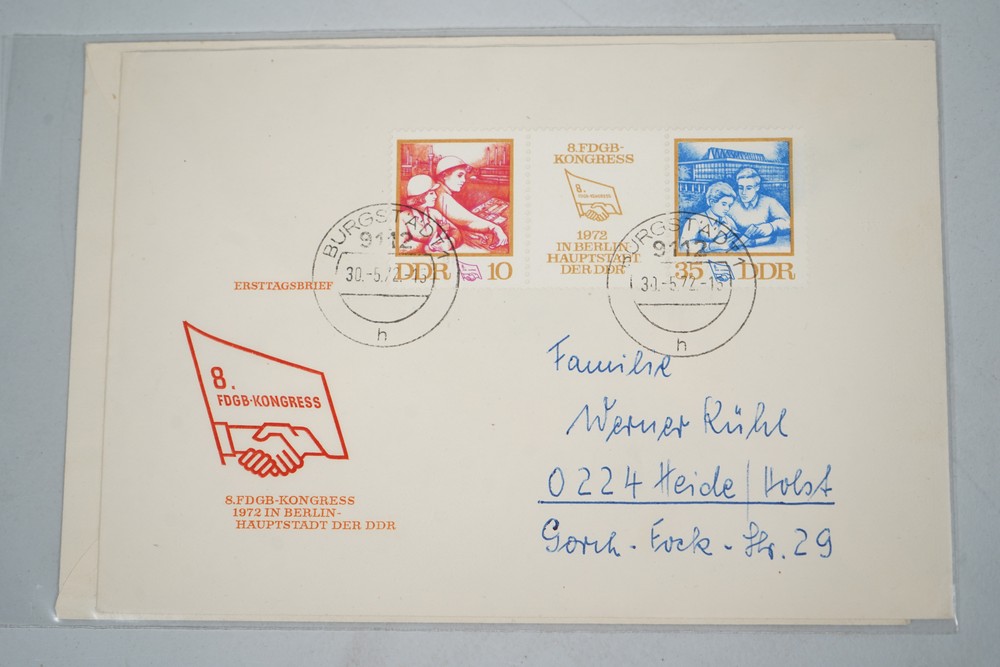 8.FDGB-
KONGRESS
8.
FDGB-KONGRESS
1972
IN BERLIN-
HAUPTSTADT
DER DDR
DDR 10
35 DDR
BURGSTÄDT 1
9112
30.-5.72.-15
h
BURGSTÄDT 1
9112
30.-5.72.-15
h
ERSTTAGSBRIEF
8.
FDGB-KONGRESS
8.FDGB-KONGRESS
1972 IN BERLIN-
HAUPTSTADT DER DDR
Familie
Werner Kühl
0224 Heide/Holst
Gorch-Fock-Str. 29